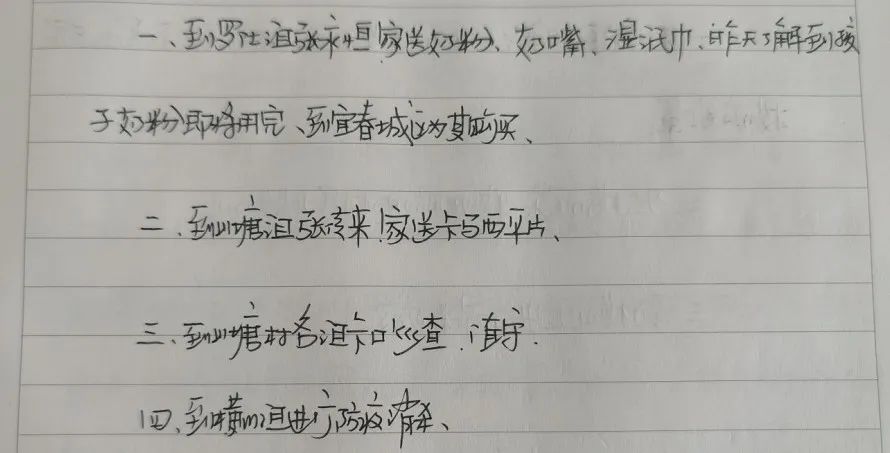 一、到罗仕沮张永恒家送奶粉、奶嘴、湿泯巾、昨天了解到孩
子奶粉即将用完、到宜春城区为其购买、
二、到山塘沮张家来家送卡马西平片、
三、到山塘村各沮卡口巡查、值守.
四、到横山沮进行防疫消杀、